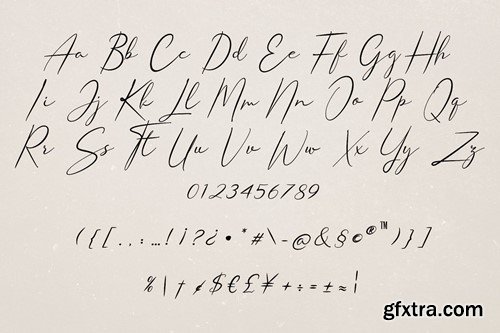 Aa Bb Cc Dd Ee Ff Gg Hh
Ii Jj Kk Ll Mm Nn Oo Pp Qq
Rr Ss Tt Uu Vv Ww Xx Yy Zz
0123456789
({[.,:…!¡?¿•*#\-@&§©®™)}]
%|†¢$€£¥+÷=±≈¦
gfxtra.com